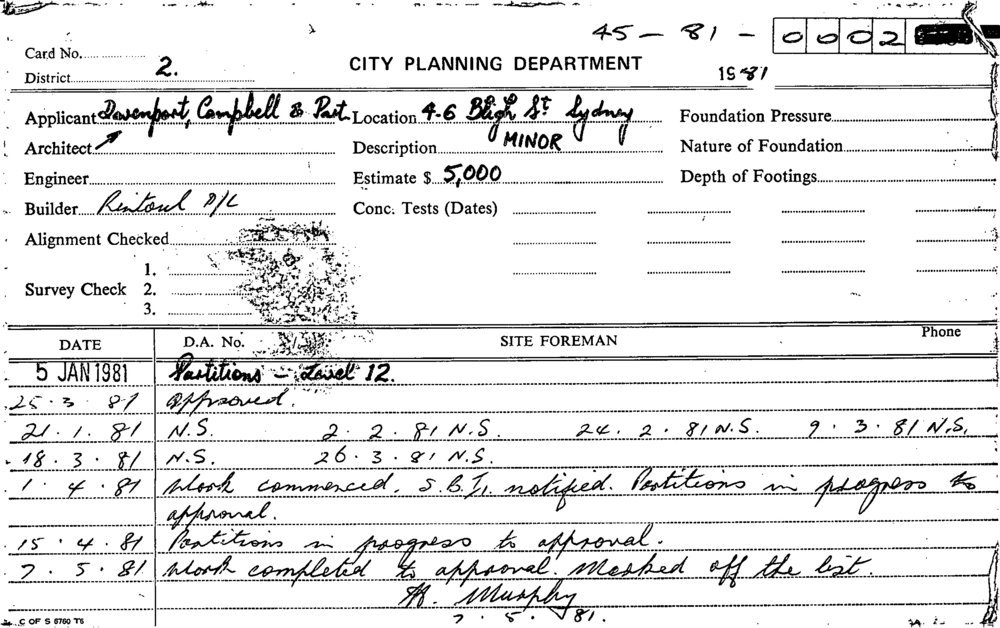 45 - 81 - 0002
Card No.
District 2.
CITY PLANNING DEPARTMENT
1981
Applicant Davenport, Campbell & Part. Location 4-6 Bligh St Sydney Foundation Pressure
Architect Description MINOR Nature of Foundation
Engineer Estimate $ 5,000 Depth of Footings
Builder Rintoul P/L Conc. Tests (Dates)
Alignment Checked
1.
Survey Check 2.
3.
DATE D.A. No. SITE FOREMAN Phone
5 JAN 1981 Partitions - Level 12.
25.3.81 Approved.
21.1.81 N.S. 2.2.81 N.S. 24.2.81 N.S. 9.3.81 N.S.
18.3.81 N.S. 26.3.81 N.S.
1.4.81 Work commenced. S.B.I. notified. Partitions in progress to
approval.
15.4.81 Partitions in progress to approval.
7.5.81 Work completed to approval. Marked off the list.
Murphy
7.5.81.
C OF S 8760 T6